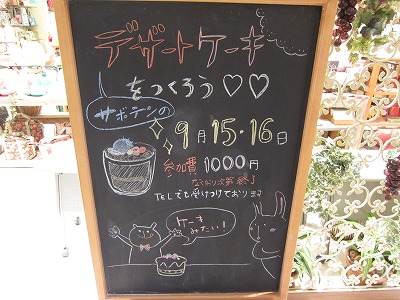 デザートケーキ
をつくろう♡♡
サボテンの
9月15・16日
参加費 1000円
なくなり次第終了
TELでも受けつけております
ケーキ
みたい!